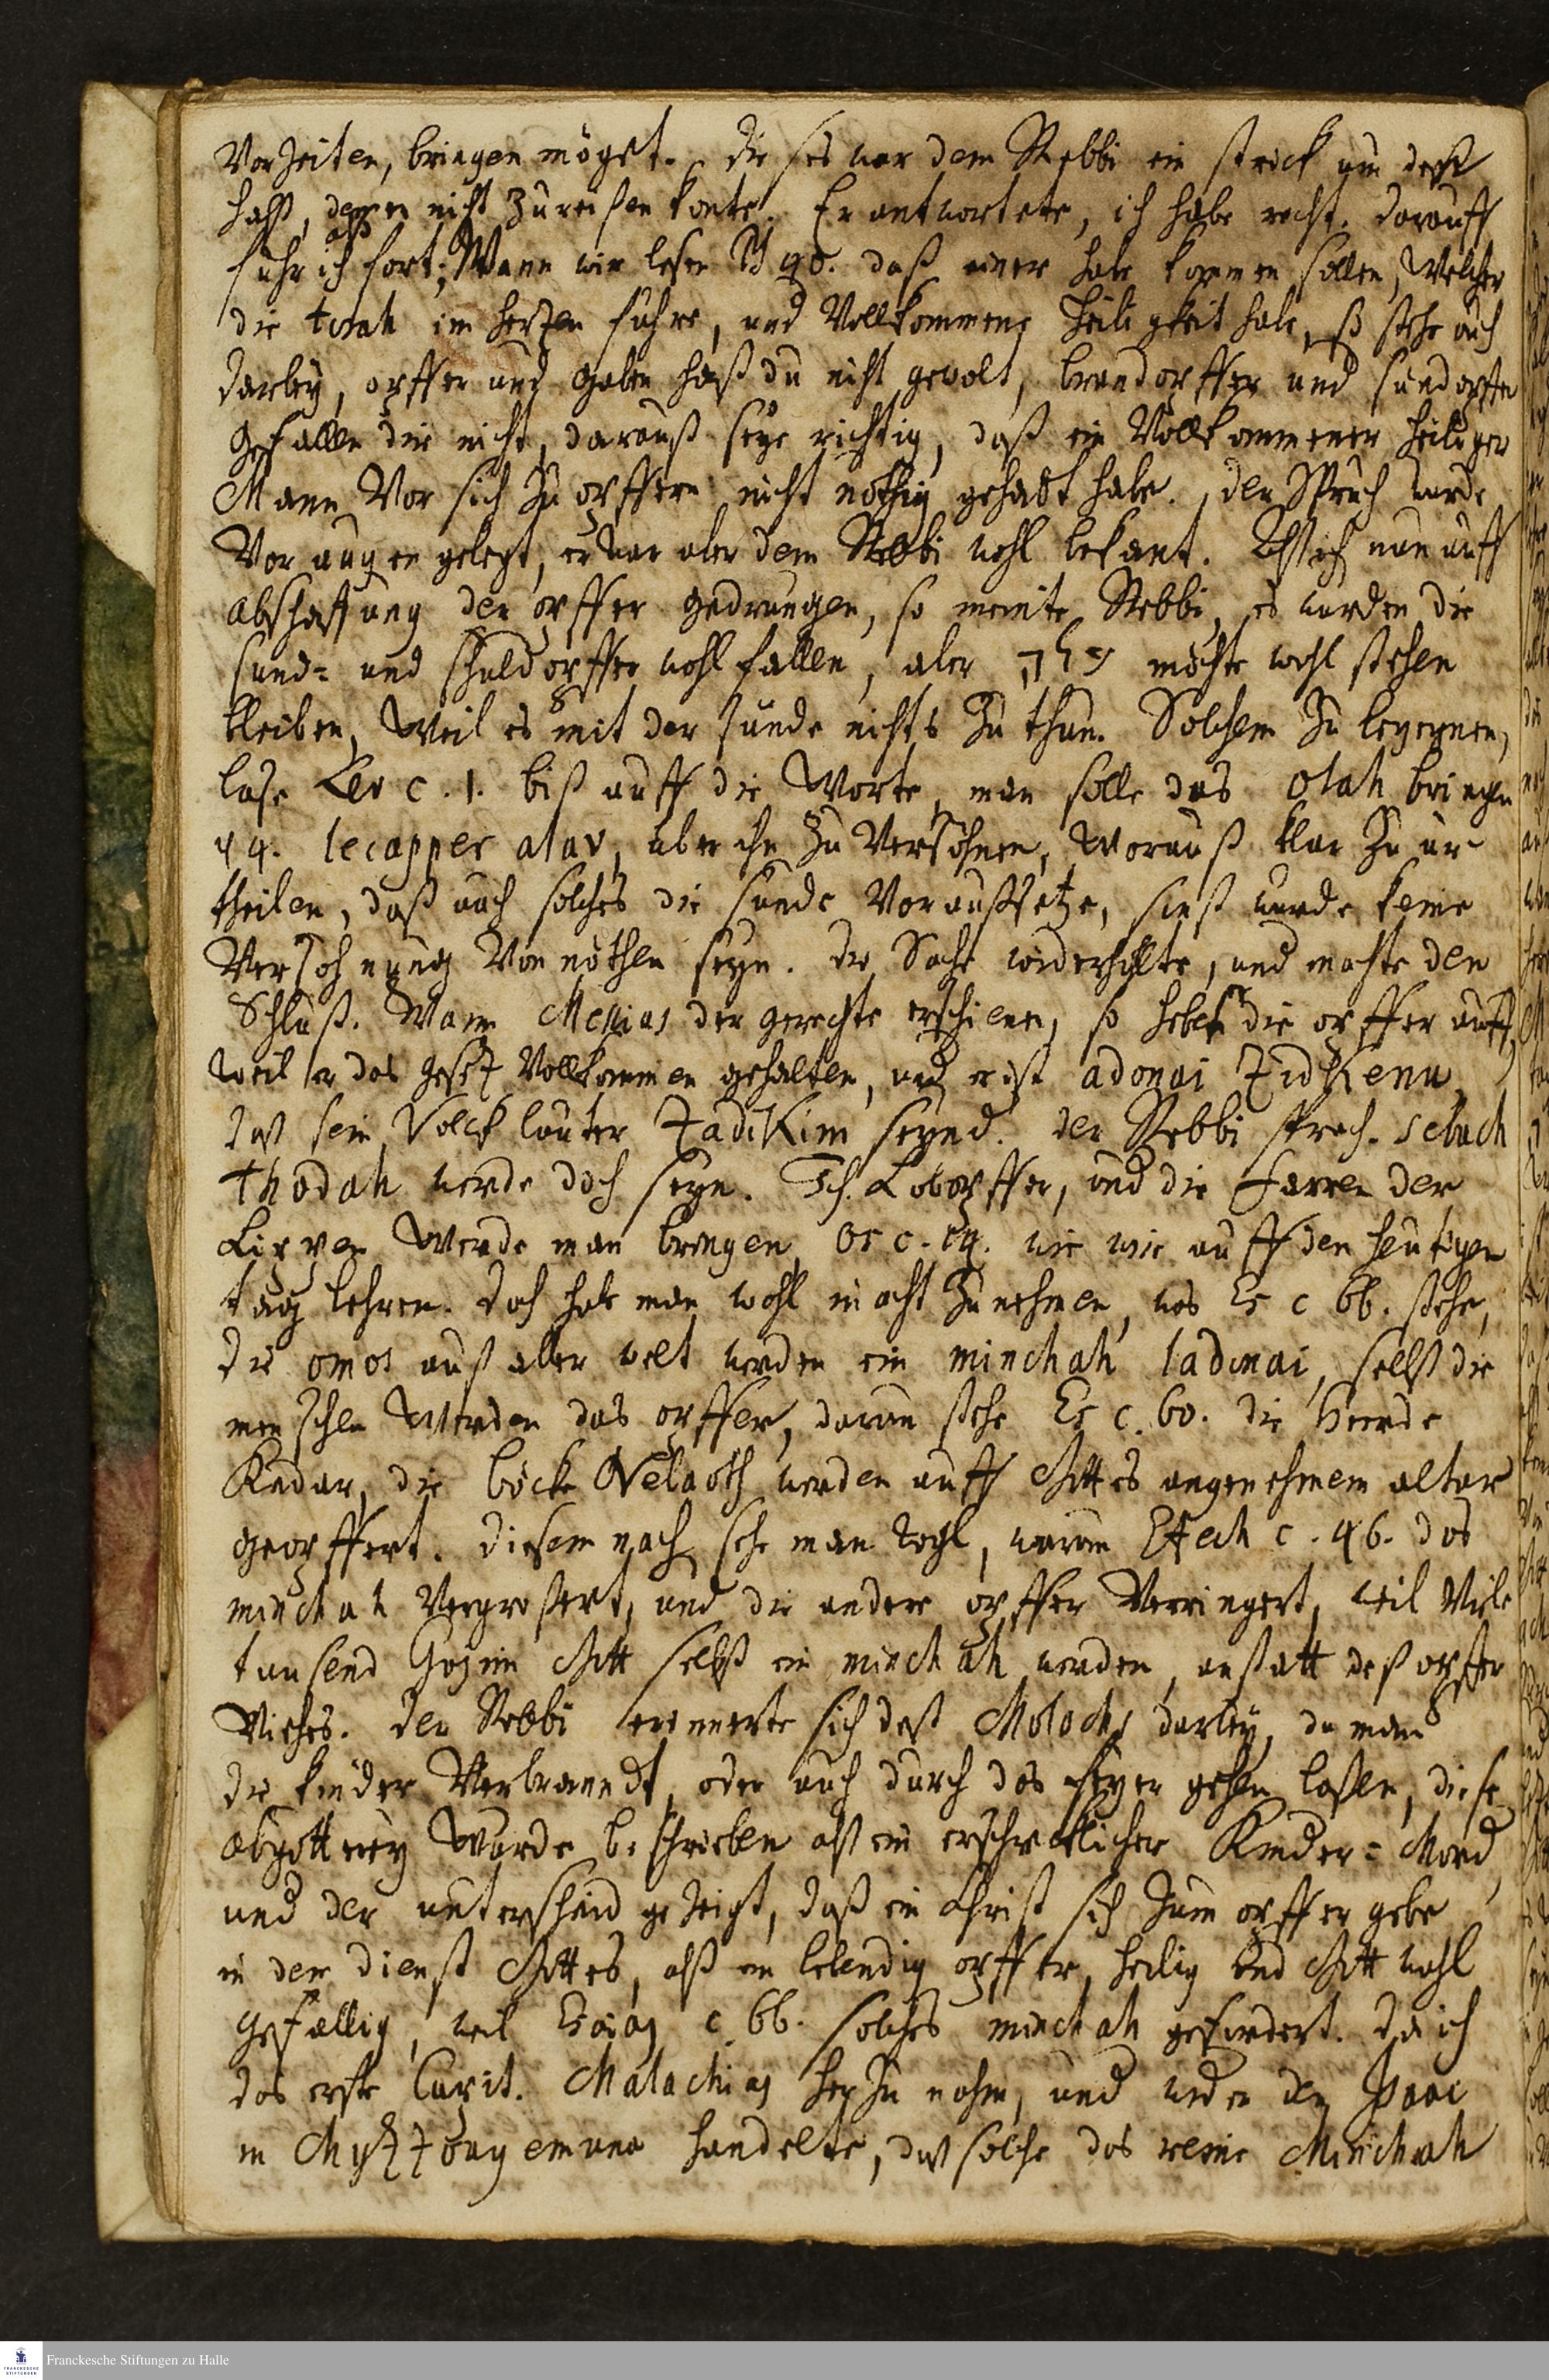 Vorzeiten, bringen möget. Dieses war dem Rebbi ein strick um dess
halß, den er nicht zureißen konte. Er antwortete, ich habe recht. darauff
fuhr ich fort; Wann wir lesen Ps 40. daß einer habe kommen sollen, welcher
die torah im hertzen führe, und Vollkommene heiligkeit habe, so stehe auch
darbey, opffer und gaben hast du nicht gewolt, brandopffer und sündopffer
gefallen dir nicht, darauß seye richtig, daß ein Vollkommener heiliger
Mann Vor sich zu opffern nicht nöthig gehabt habe. der Spruch wurde
Vor augen gelegt, er war aber dem Rebbi wohl bekant. Alß ich nun auff
abschaffung der opffer gedrungen, so meinte Rebbi, es wurden die
sünd= und schuldopffer wohl fallen, aber עלה möchte wohl stehen
bleiben, weil es mit der sünde nichts zu thun. Solchem zu begegnen,
lase Lev c. 1. biß auff die Worte, man solle das olah bringen
v 4. lecapper alav, über ihn zu Versöhnen, worauß klar zu ur-
theilen, daß auch solches die sünde Voraußsetze, sonst wurde keine
Versöhnung Von nöthen seyn. die Sache widerhollte, und machte den
Schluß. Wann Messias der gerechte erschienen, so hebet er die opffer auff,
weil er das gesetz Vollkommen gehalten, und er ist adonai Zidkenu,
daß sein Volck lauter Zadikim seynd. der Rebbi sprach. sebach
thodah werde doch seyn. Ich. Lobopffer, und die Farren der
Lippen werde man bringen, Os c. 14. wie wir auff den heutigen
tag lehren. Doch habe man wohl in acht zu nehmen, was Es c 66. stehe,
die omos auß aller welt werden ein minchah ladonai, selbst die
menschen werden das opffer, davon stehe Es c. 60. die Heerde
Kedar, die böcke Nebaoth werden auff Gottes angenehmem altar
geopffert. diesem nach sehe man wohl, warum Ezech c. 46. das
minchah Vergrosert, und die andere opffer Verringert, weil Viele
tausend Gojim Gott selbst ein minchah werden, anstatt deß opffer
Viehes. Der Rebbi erinnerte sich deß Molochs darbey, da man
die kinder Verbranndt, oder auch durch das feyer gehen lassen, diese
abgötterey wurde beschrieben alß ein erschrecklicher Kinder=Mord,
und der unterscheid gezeigt, daß ein Christ sich zum opffer gebe
in dem dienst Gottes, alß ein lebendig opffer, heilig und Gott wohl
gefallig, weil Esaias c. 66. solches minchah gefordert. Da ich
das erste Capit. Malachias herzu nahm, und wider den Isaac
in chyzzouq emuna handelte, daß solche das reine Minchah
Franckesche Stiftungen zu Halle